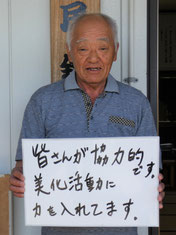 皆さんが協力的です。
美化活動に
力を入れてます。